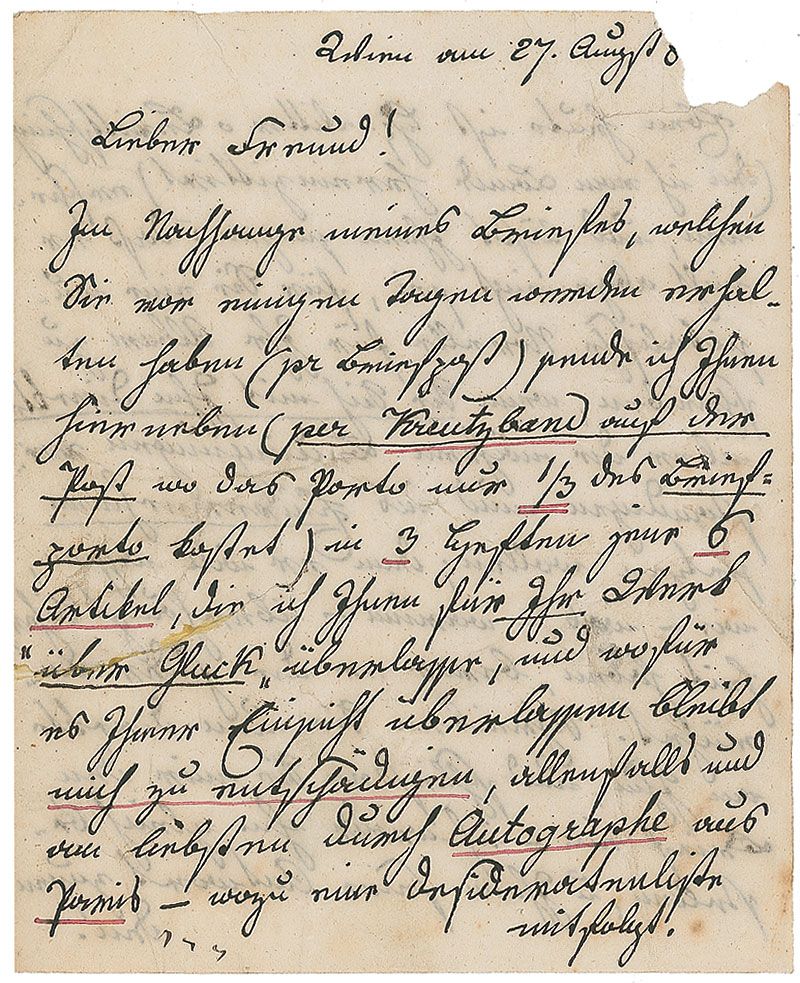 Wien am 27. Augst 8
Lieber Freund!
Im Nachhange meines Briefes, welchen
Sie vor einigen Tagen werden erhal-
ten haben (pr Briefpost) sende ich Ihnen
hierneben (per Kreutzband auf der
Post wo das Porto nur 1/3 des Brief=
porto kostet) in 3 Heften jene 6
Artikel, die ich Ihnen für Ihr Werk
"über Gluck" überlasse, und wofür
es Ihrer Einsicht überlassen bleibt
mich zu entschädigen, allenfalls und
am liebsten durch Autographe aus
Paris – wozu eine Desideratenliste
mitfolgt.